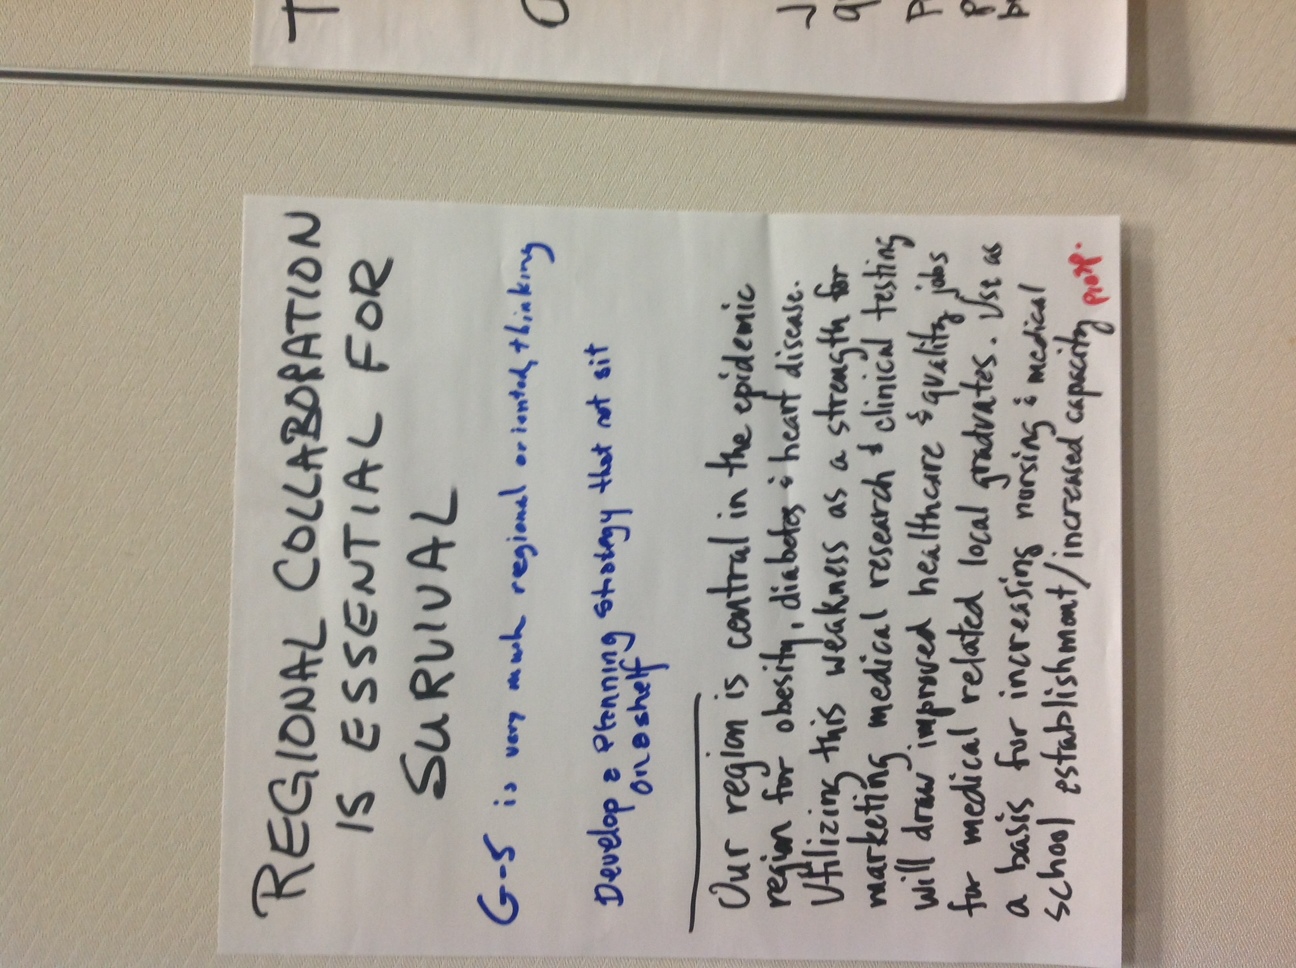 REGIONAL COLLABORATION
IS ESSENTIAL FOR
SURVIVAL
G-5 is very much regional oriented, thinking
Develop a Planning strategy that not sit
on a shelf
Our region is central in the epidemic
region for obesity, diabetes & heart disease.
Utilizing this weakness as a strength for
marketing medical research & clinical testing
will draw improved healthcare & quality jobs
for medical related local graduates. Use as
a basis for increasing nursing & medical
school establishment/increased capacity